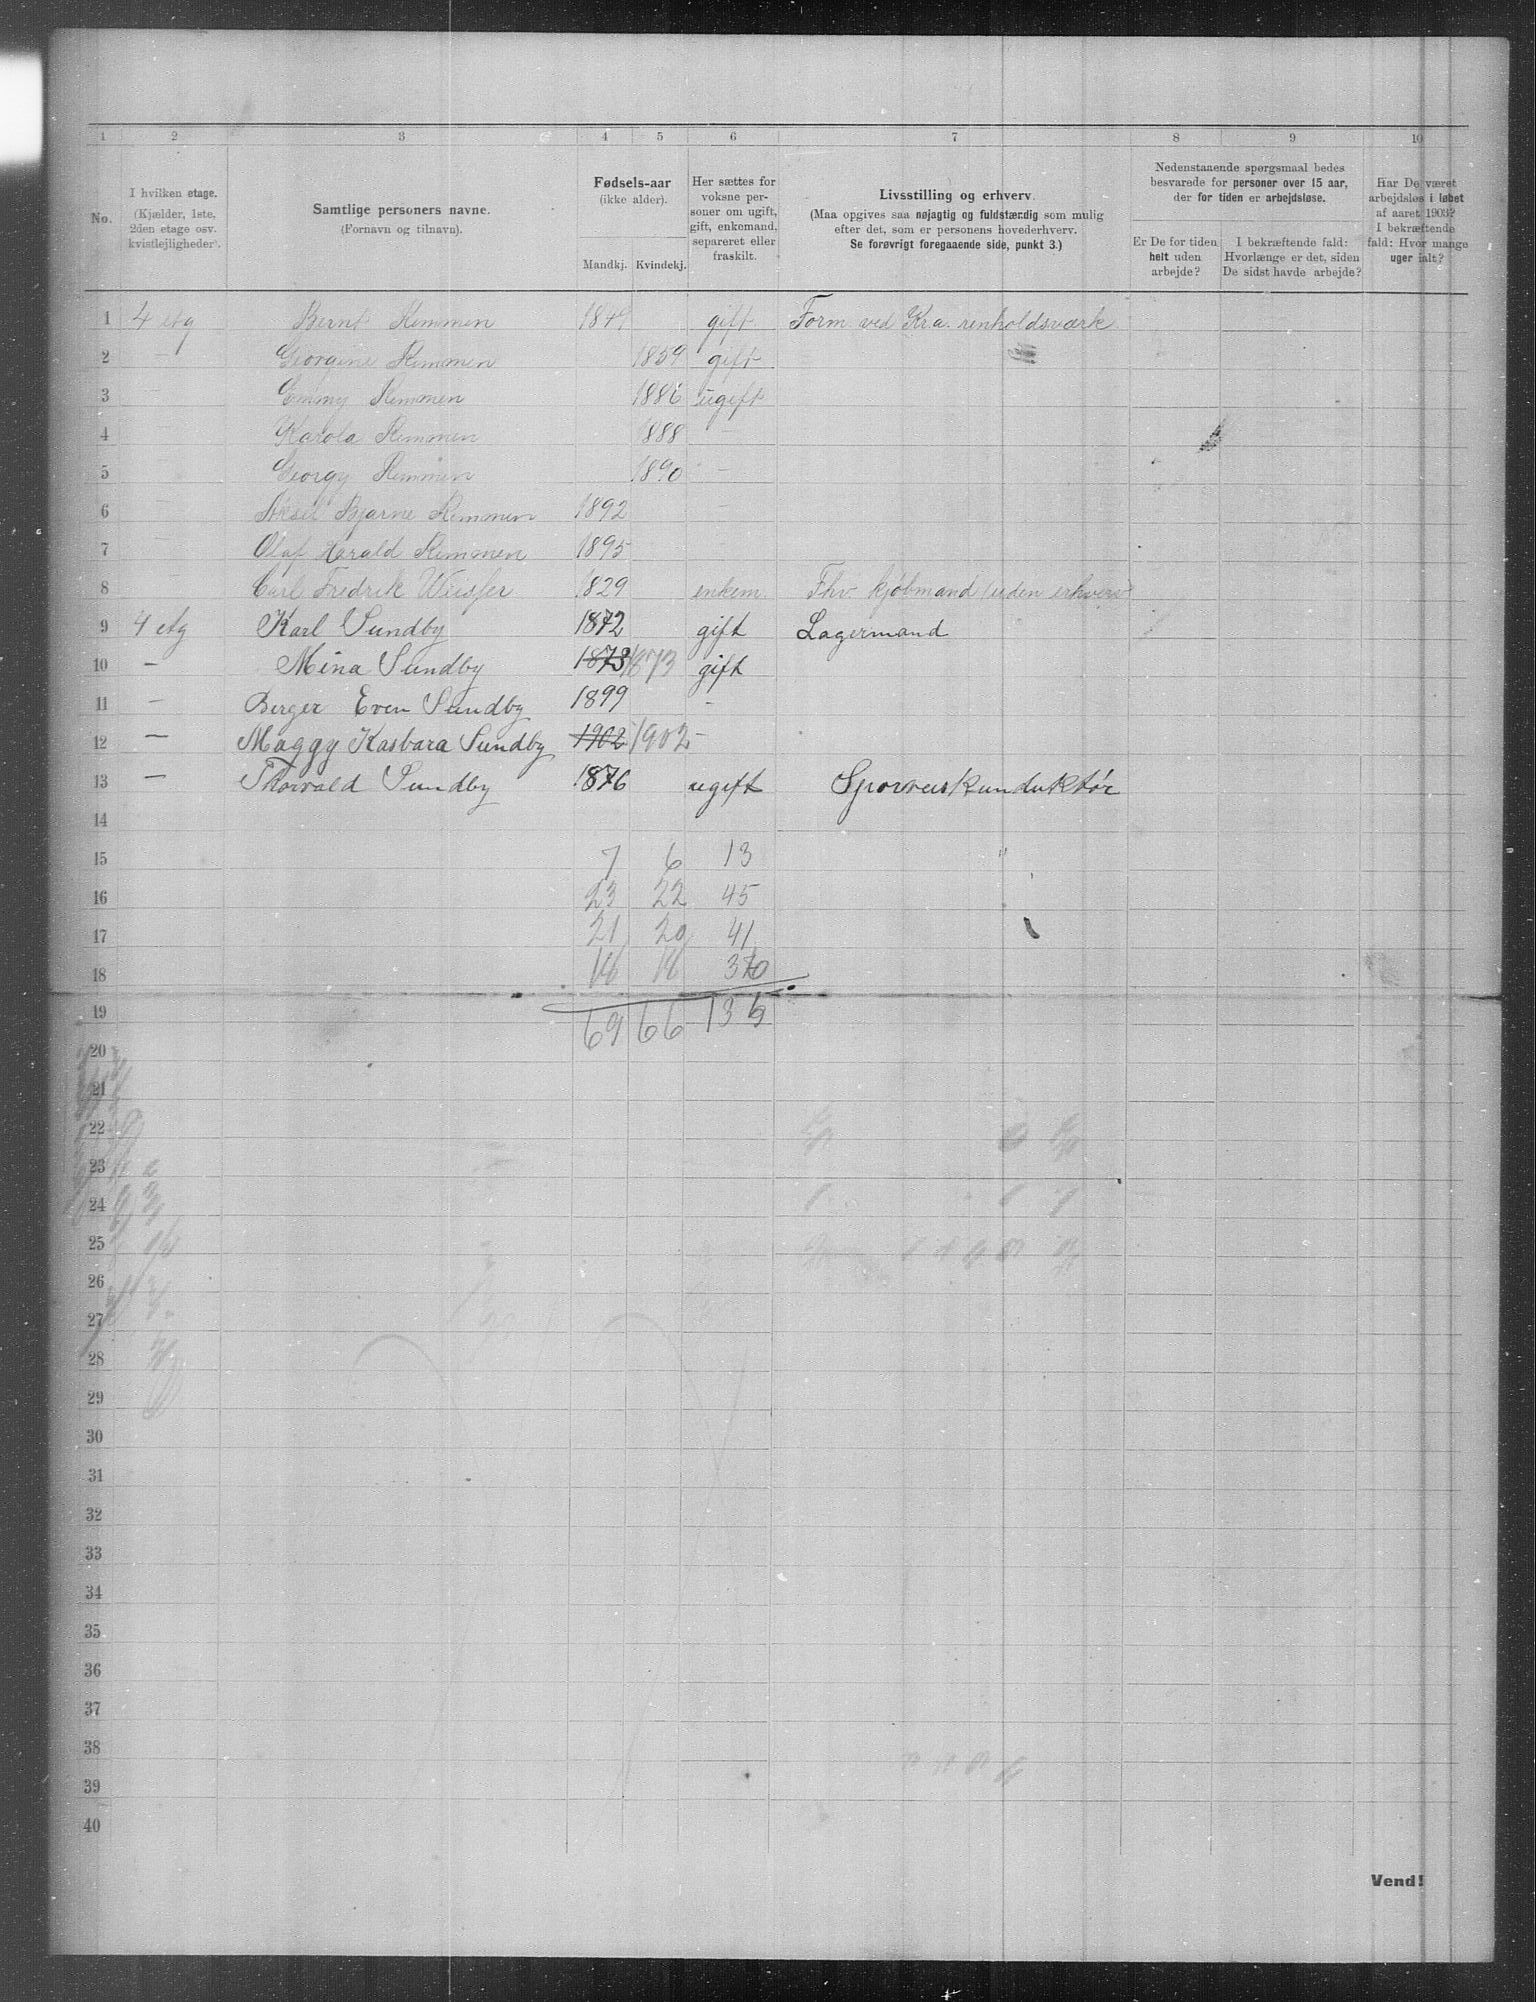 1 2 3 4 5 6 7 8 9 10
No.
I hvilken etage.
(Kjælder, 1ste,
2den etage osv.
kvistlejligheder).
Samtlige personers navne.
(Fornavn og tilnavn).
Fødsels-aar
(ikke alder).
Mandkj. Kvindekj.
Her sættes for
voksne per-
soner om ugift,
gift, enkemand,
separeret eller
fraskilt.
Livsstilling og erhverv.
(Maa opgives saa nøjagtig og fuldstærdig som mulig
efter det, som er personens hovederhverv.
Se forøvrigt foregaaende side, punkt 3.)
Nedenstaaende spørgsmaal bedes
besvarede for personer over 15 aar,
der for tiden er arbejdsløse.
Er De for tiden
helt uden
arbejde?
I bekræftende fald:
Hvorlænge er det, siden
De sidst havde arbejde?
Har De været
arbejdsløs i løbet
af aaret 1903?
I bekræftende
fald: Hvor mange
uger ialt?
1 4 etg Bernt Remmen 1849 gift Form. ved Kra. renholdsværk
2 — Georgine Remmen 1859 gift
3 — Emmy Remmen 1886 ugift
4 — Karola Remmen 1888 —
5 — Georgy Remmen 1890 —
6 — Aksel Bjarne Remmen 1892 —
7 — Olaf Harald Remmen 1895
8 — Carl Fredrik 1829 enkem. Fhv. kjøbmand (uden erhverv
9 4 etg Karl Sundby 1872 gift Lagermand
10 — Mina Sundby 1873 1873 gift
11 — Berger Even Sundby 1899 —
12 — Maggy Kasbara Sundby 1902 1902 —
13 — Thorvald Sundby 1876 ugift Sporveiskunduktør
14
15 7 6 13
16 23 22 45
17 21 20 41
18 18 18
19 69 66 135
20
21
22
23
24
25
26
27
28
29
30
31
32
33
34
35
36
37
38
39
40
Vend!